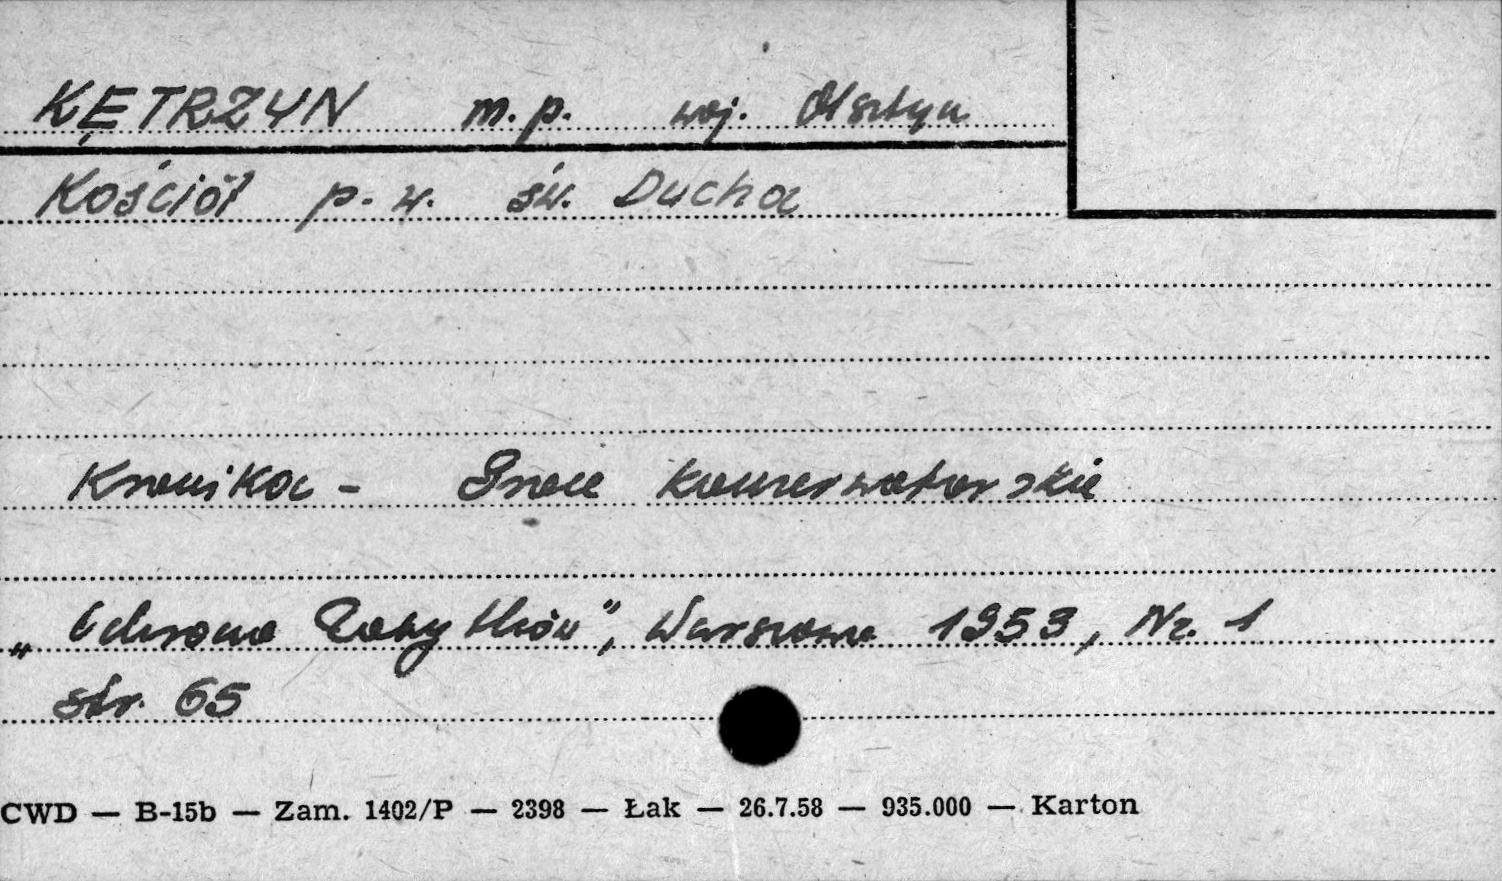 KĘTRZYN m.p. woj. Olsztyn
Kościół p.w. św. Ducha
Kronika - Prace konserwatorskie
„Ochrona Zabytków”, Warszawa 1953, Nr. 1
str. 65
CWD — B-15b — Zam. 1402/P — 2398 — Łak — 26.7.58 — 935.000 — Karton